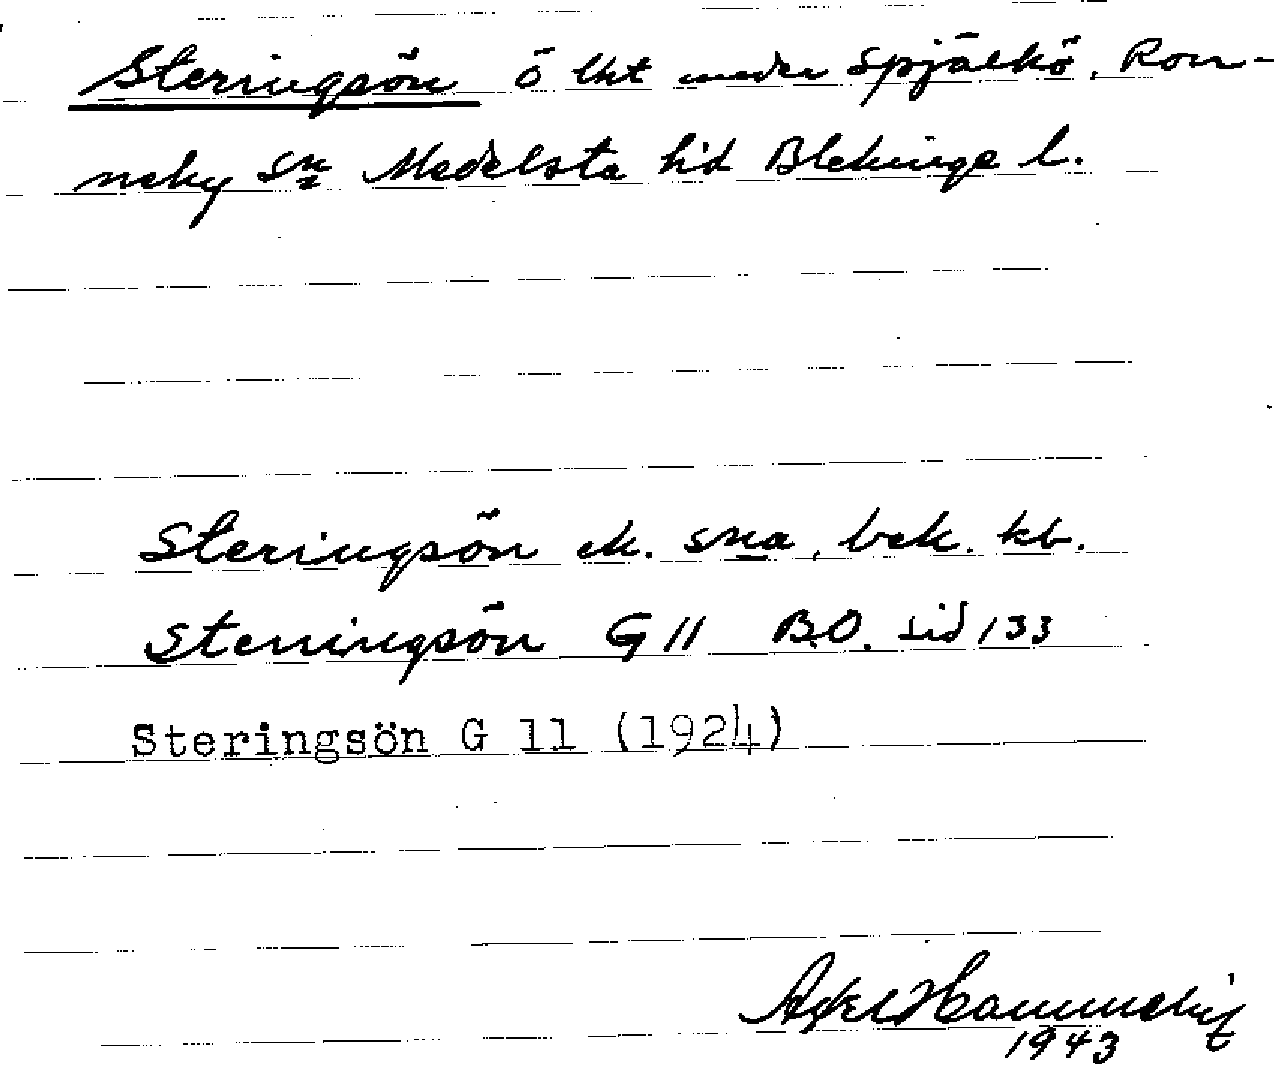 Steringsön ö lkt under Spjälkö, Ron-
neby sn Medelsta hd Blekinge l.
Steringsön ek. ska, bek. kb.
Sterringsön G 11 B.O. sid 133
Steringsön G 11 (1924)
Axel
1943